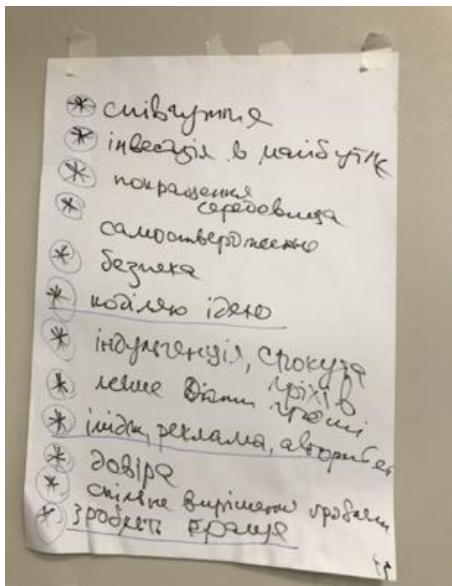 співчуття
інвестиція в майбутнє
покращення
середовища
самоствердження
безпека
поділяю ідею
індульгенція, спокута
гріхів
легше дати гроші
імідж, реклама, авторитет
довіра
спільне вирішення проблем
зробить краще